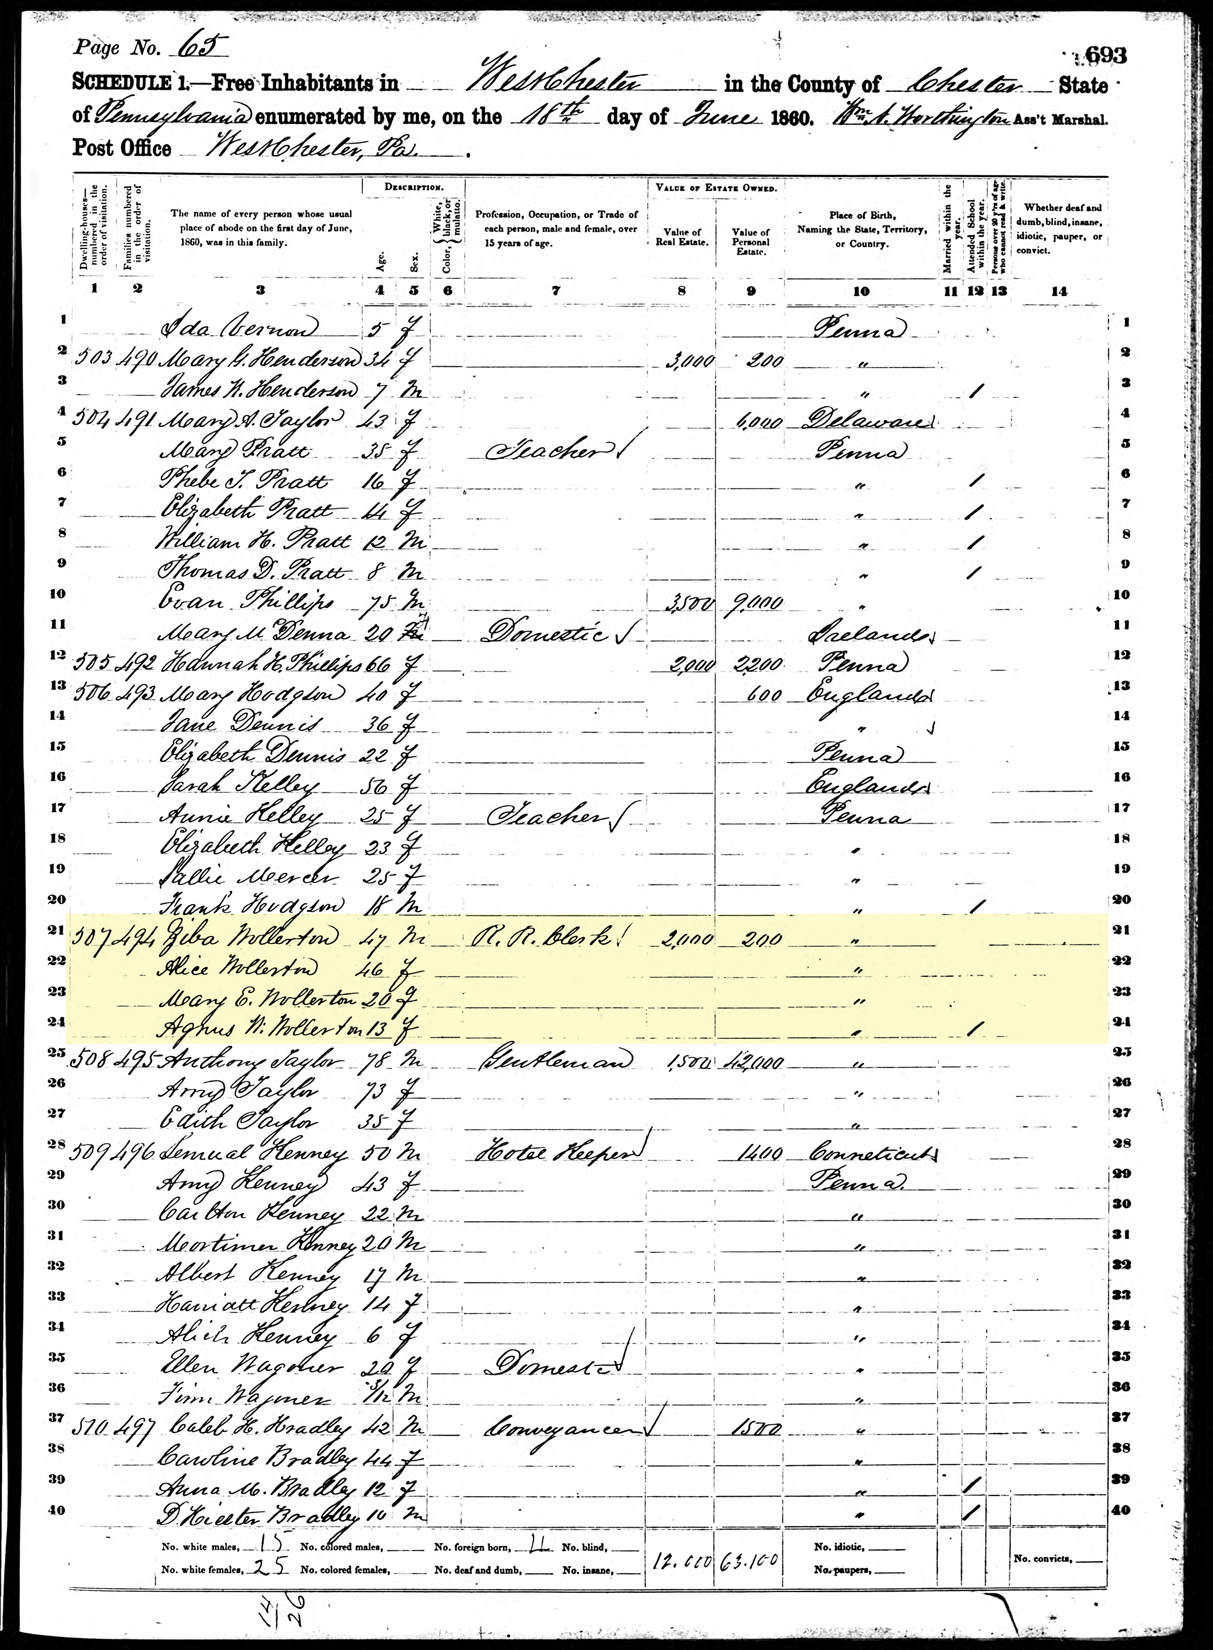 Page No. 65
693
SCHEDULE 1.—Free Inhabitants in WestChester in the County of Chester State
of Pennsylvania enumerated by me, on the 18th day of June 1860. Wm. A. Worthington Ass't Marshal.
Post Office WestChester, Pa.
Dwelling-houses— numbered in the order of visitation.
Families numbered in the order of visitation.
The name of every person whose usual place of abode on the first day of June, 1860, was in this family.
DESCRIPTION.
Age.
Sex.
Color, White, black, or mulatto.
Profession, Occupation, or Trade of each person, male and female, over 15 years of age.
VALUE OF ESTATE OWNED.
Value of Real Estate.
Value of Personal Estate.
Place of Birth, Naming the State, Territory, or Country.
Married within the year.
Attended School within the year.
Persons over 20 y'rs of age who cannot read & write.
Whether deaf and dumb, blind, insane, idiotic, pauper, or convict.
1 2 3 4 5 6 7 8 9 10 11 12 13 14
1 Ida Vernon 5 f Penna 1
2 503 490 Mary G. Henderson 34 f 3,000 200 " 2
3 James W. Henderson 7 m " / 3
4 504 491 Mary A. Taylor 43 f 6,000 Delaware 4
5 Mary Pratt 35 f Teacher Penna 5
6 Phebe T. Pratt 16 f " / 6
7 Elizabeth Pratt 14 f " / 7
8 William H. Pratt 12 m " / 8
9 Thomas D. Pratt 8 m " / 9
10 Evan Phillips 75 m 3,500 9,000 " 10
11 Mary M. Denna 20 f Domestic Ireland 11
12 505 492 Hannah H. Phillips 66 f 2,000 2200 Penna 12
13 506 493 Mary Hodgson 40 f 600 England 13
14 Jane Dennis 36 f " 14
15 Elizabeth Dennis 22 f Penna 15
16 Sarah Kelley 56 f England 16
17 Annie Kelley 25 f Teacher Penna 17
18 Elizabeth Kelley 23 f " 18
19 Sallie Mercer 25 f " 19
20 Frank Hodgson 18 m " / 20
21 507 494 Ziba Wollerton 47 m R. R. Clerk 2,000 200 " 21
22 Alice Wollerton 46 f " 22
23 Mary E. Wollerton 20 f " 23
24 Agnus W. Wollerton 13 f " / 24
25 508 495 Anthony Taylor 78 m Gentleman 1,500 42,000 " 25
26 Amy Taylor 73 f " 26
27 Edith Taylor 35 f " 27
28 509 496 Lemual Kenney 50 m Hotel Keeper 1400 Conneticut 28
29 Amy Kenney 43 f Penna. 29
30 Carlton Kenney 22 m " 30
31 Mortimer Kenney 20 m " 31
32 Albert Kenney 17 m " 32
33 Hariatt Kenney 14 f " 33
34 Kenney 6 f " 34
35 Ellen Wagoner 20 f Domestc " 35
36 Wagoner 3/12 m " 36
37 510 497 Caleb H. Bradley 42 m Conveyancer 1500 " 37
38 Caroline Bradley 44 f " 38
39 Anna M. Bradley 12 f " / 39
40 D. Hiester Bradley 10 m " / 40
No. white males, 15 No. colored males, No. foreign born, No. blind, No. idiotic,
12.000 63.100 No. convicts,
No. white females, 25 No. colored females, No. deaf and dumb, No. insane, No. paupers,
14/26